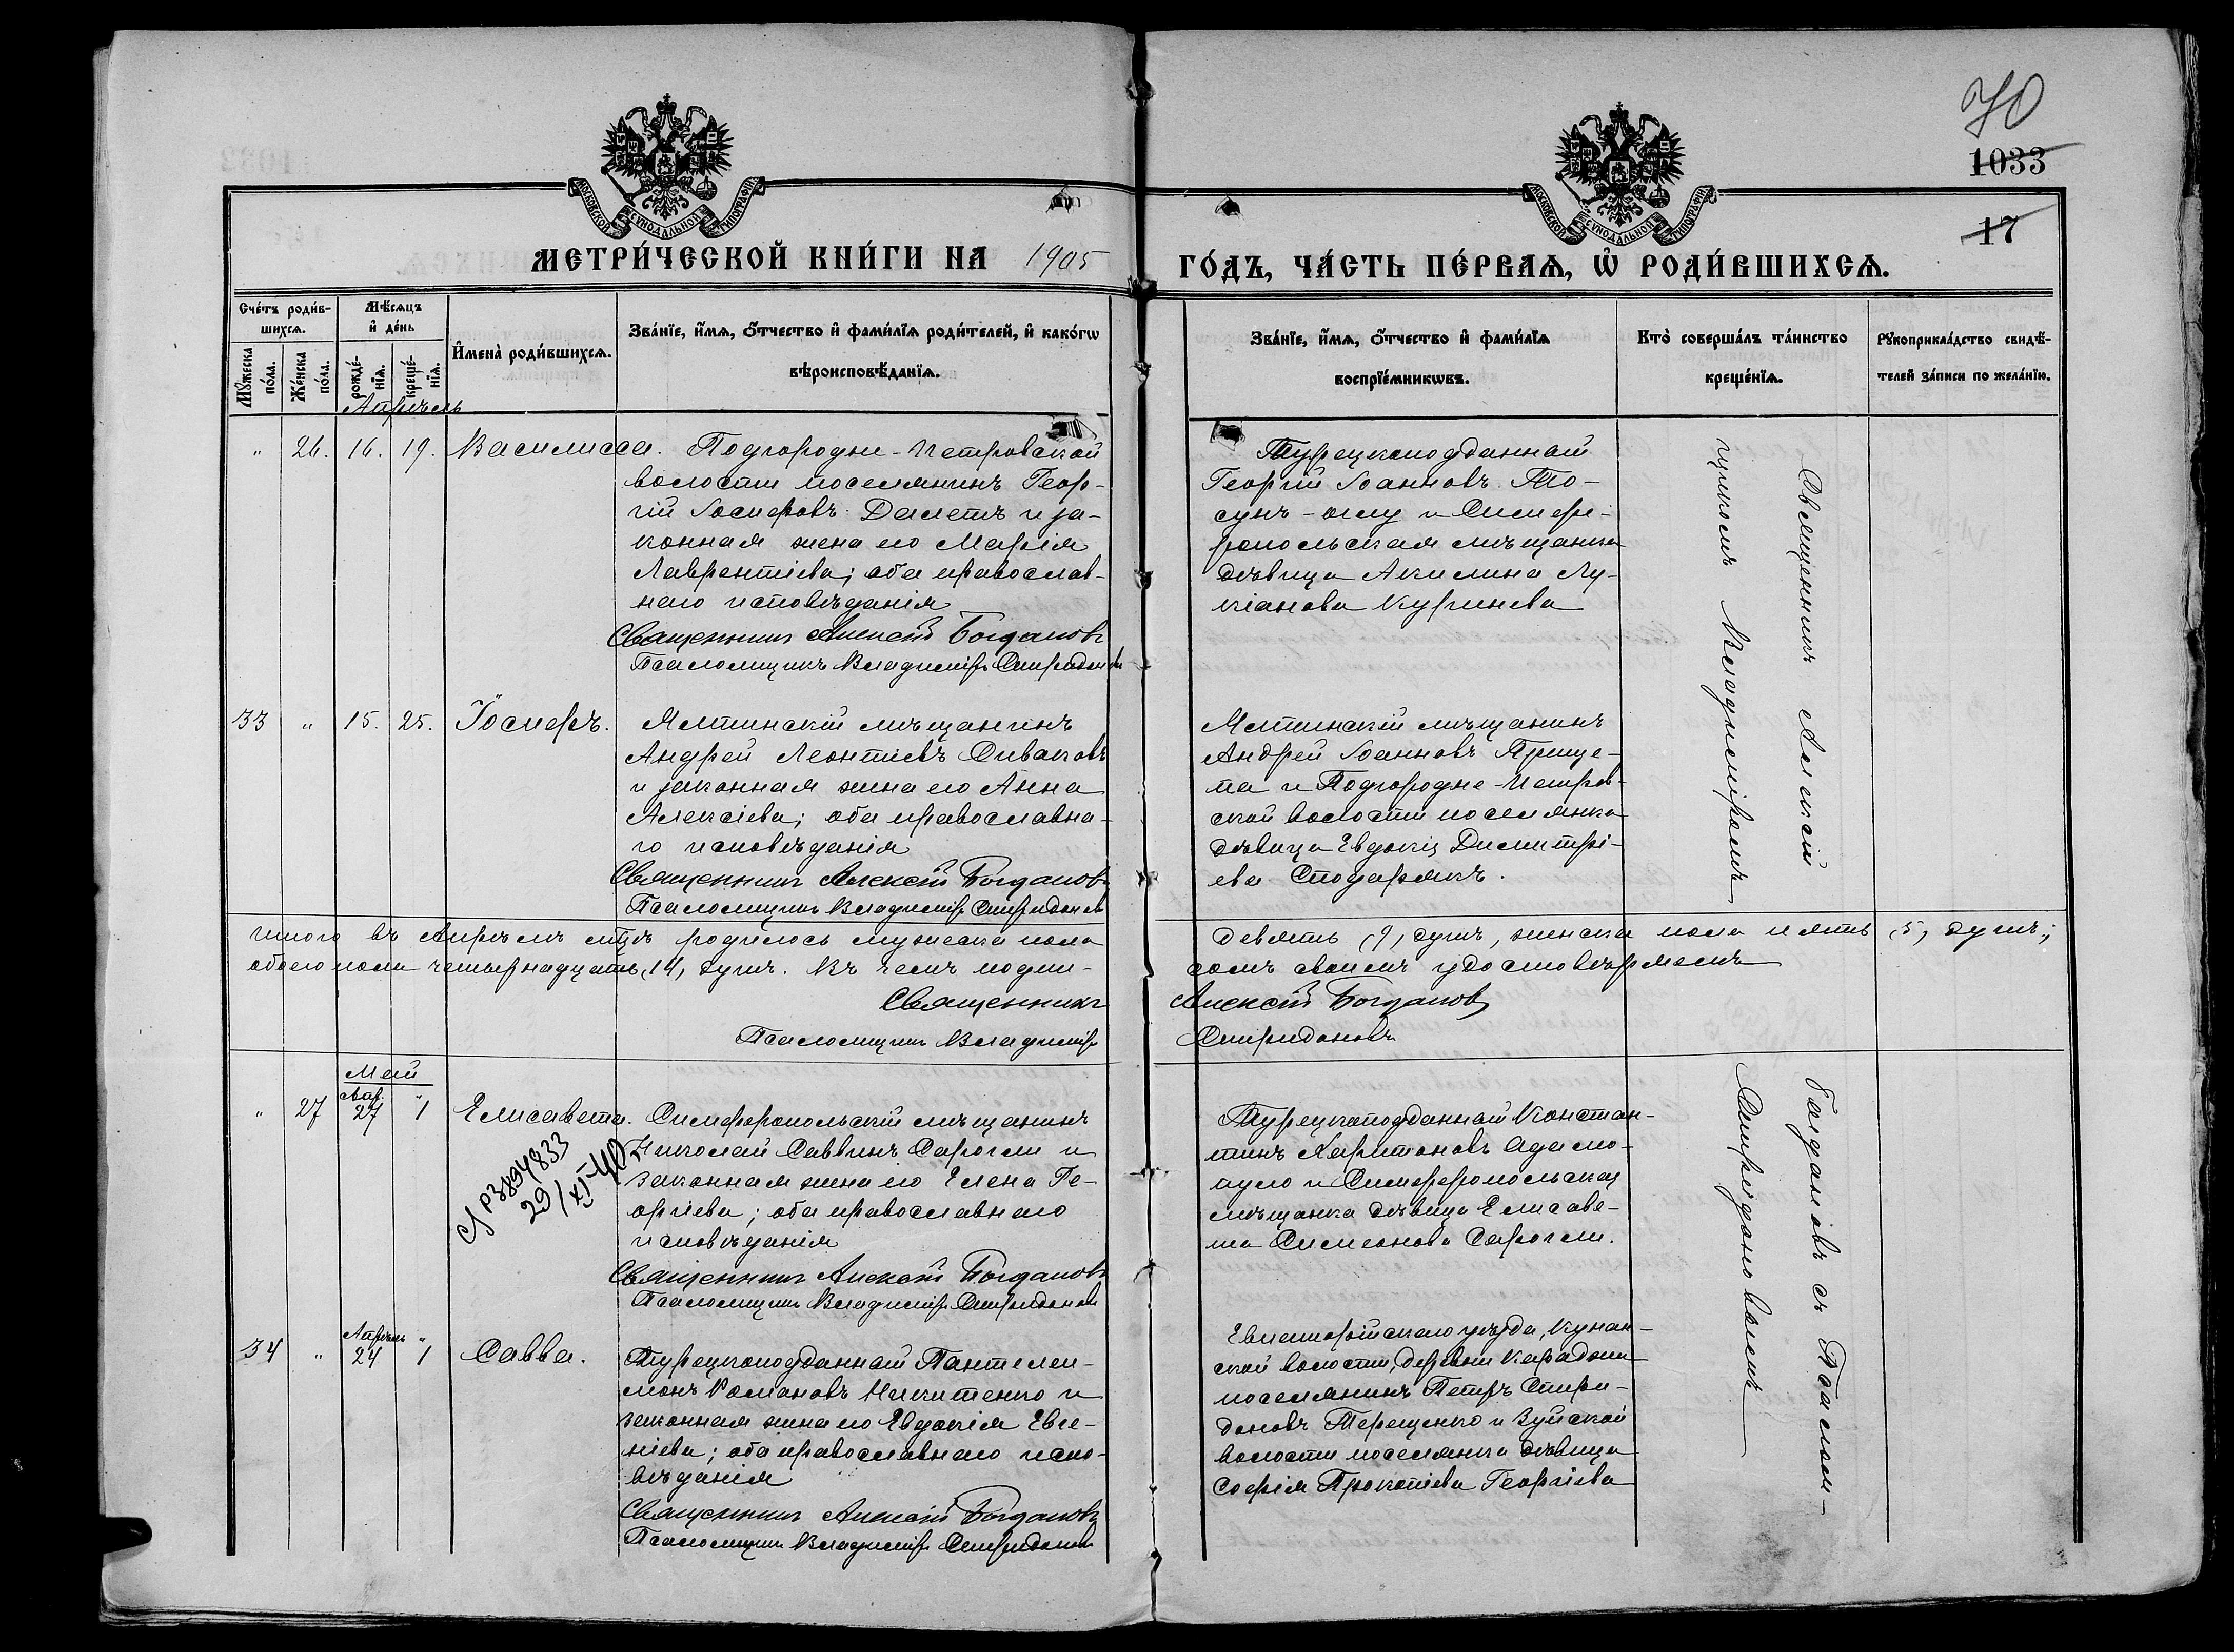 70
1033
17
МОСКОВСКОЙ СѴНОДАЛЬНОЙ ТИПОГРАФІИ
МОСКОВСКОЙ СѴНОДАЛЬНОЙ ТИПОГРАФІИ
МЕТРИ́ЧЕСКОЙ КНИ́ГИ НА 1905
ГО́ДЪ, ЧА́СТЬ ПЕ́РВАѦ, Ѡ҆ РОДИ́ВШИХСѦ.
Сче́тъ роди́в-
шихсѧ.
Мꙋ́жеска по́ла.
Же́нска по́ла.
Мѣ́сѧцъ
и҆ де́нь
рожде́-
нїѧ.
креще́-
нїѧ.
И҆мена̀ роди́вшихсѧ.
Зва́нїе, и҆́мѧ, ѻ҆́тчество и҆ фами́лїѧ роди́телей, и҆ како́гѡ
вѣроисповѣ́данїѧ.
Зва́нїе, и҆́мѧ, ѻ҆́тчество и҆ фами́лїѧ
воспрїе́мникѡвъ.
Кто̀ соверша́лъ та́инство
креще́нїѧ.
Рꙋкоприкла́дство свидѣ́-
телей за́писи по жела́нїю.
Апрѣль
" 26. 16. 19. Василисса. Подгородне-Петровской
волости поселянинъ Геор-
гій Іосифовъ Далетъ и за-
конная жена его Марія
Лаврентіева; оба православ-
наго исповѣданія
Священникъ Алексій Богдановъ
Псаломщикъ Владиміръ Спиридоновъ
Турецкоподданный
Георгій Іоанновъ То-
сунъ-оглу и Симфе-
ропольская мѣщанка
дѣвица Акилина Лу-
кіанова Куринева
33 " 15. 25. Іосифъ. Ялтинскій мѣщанинъ
Андрей Леонтіевъ Сиваковъ
и законная жена его Анна
Алексіева; оба православна-
го исповѣданія
Священникъ Алексій Богдановъ
Псаломщикъ Владиміръ Спиридоновъ
Ялтинскій мѣщанинъ
Андрей Іоанновъ Прище-
па и Подгородне-Петров-
ской волости поселянка
дѣвица Евдокія Димитрі-
ева Сподарякъ.
Священникъ Алексій
щикомъ Владиміромъ
Итого въ Апрѣлѣ м-цѣ родилось мужеска пола девять (9) душъ, женска пола пять (5) душъ;
обоего пола четырнадцать (14) душъ. Въ чемъ подпи- сомъ своимъ удостовѣряемъ
Священникъ Алексій Богдановъ
Псаломщикъ Владиміръ Спиридоновъ
Май
" 27 Апр. 27 " 1 Елисавета. Симферопольскій мѣщанинъ
Николай Саввинъ Сарогли и
законная жена его Елена Ге-
оргіева; оба православнаго
исповѣданія
Священникъ Алексій Богдановъ
Псаломщикъ Владиміръ Спиридоновъ
3894833
29/XI-40
Турецкоподданный Констан-
тинъ Харитоновъ Адамо-
пуло и Симферопольская
мѣщанка дѣвица Елисаве-
та Симеонова Сарогли.
34 " Апрѣль 24 " 1 Савва. Турецкоподданный Пантелеи-
монъ Романовъ Никитенко и
законная жена его Евдокія Евге-
ніева; оба православнаго испо-
вѣданія
Священникъ Алексій Богдановъ
Псаломщикъ Владиміръ Спиридоновъ
Евпаторійскаго уѣзда,
ской волости, деревни
поселянинъ Петръ Спири-
доновъ Терещенко и Зуйской
волости поселянка дѣвица
Софія Прокопіева Георгіева
Богдановъ съ Псалом-
Спиридоновымъ